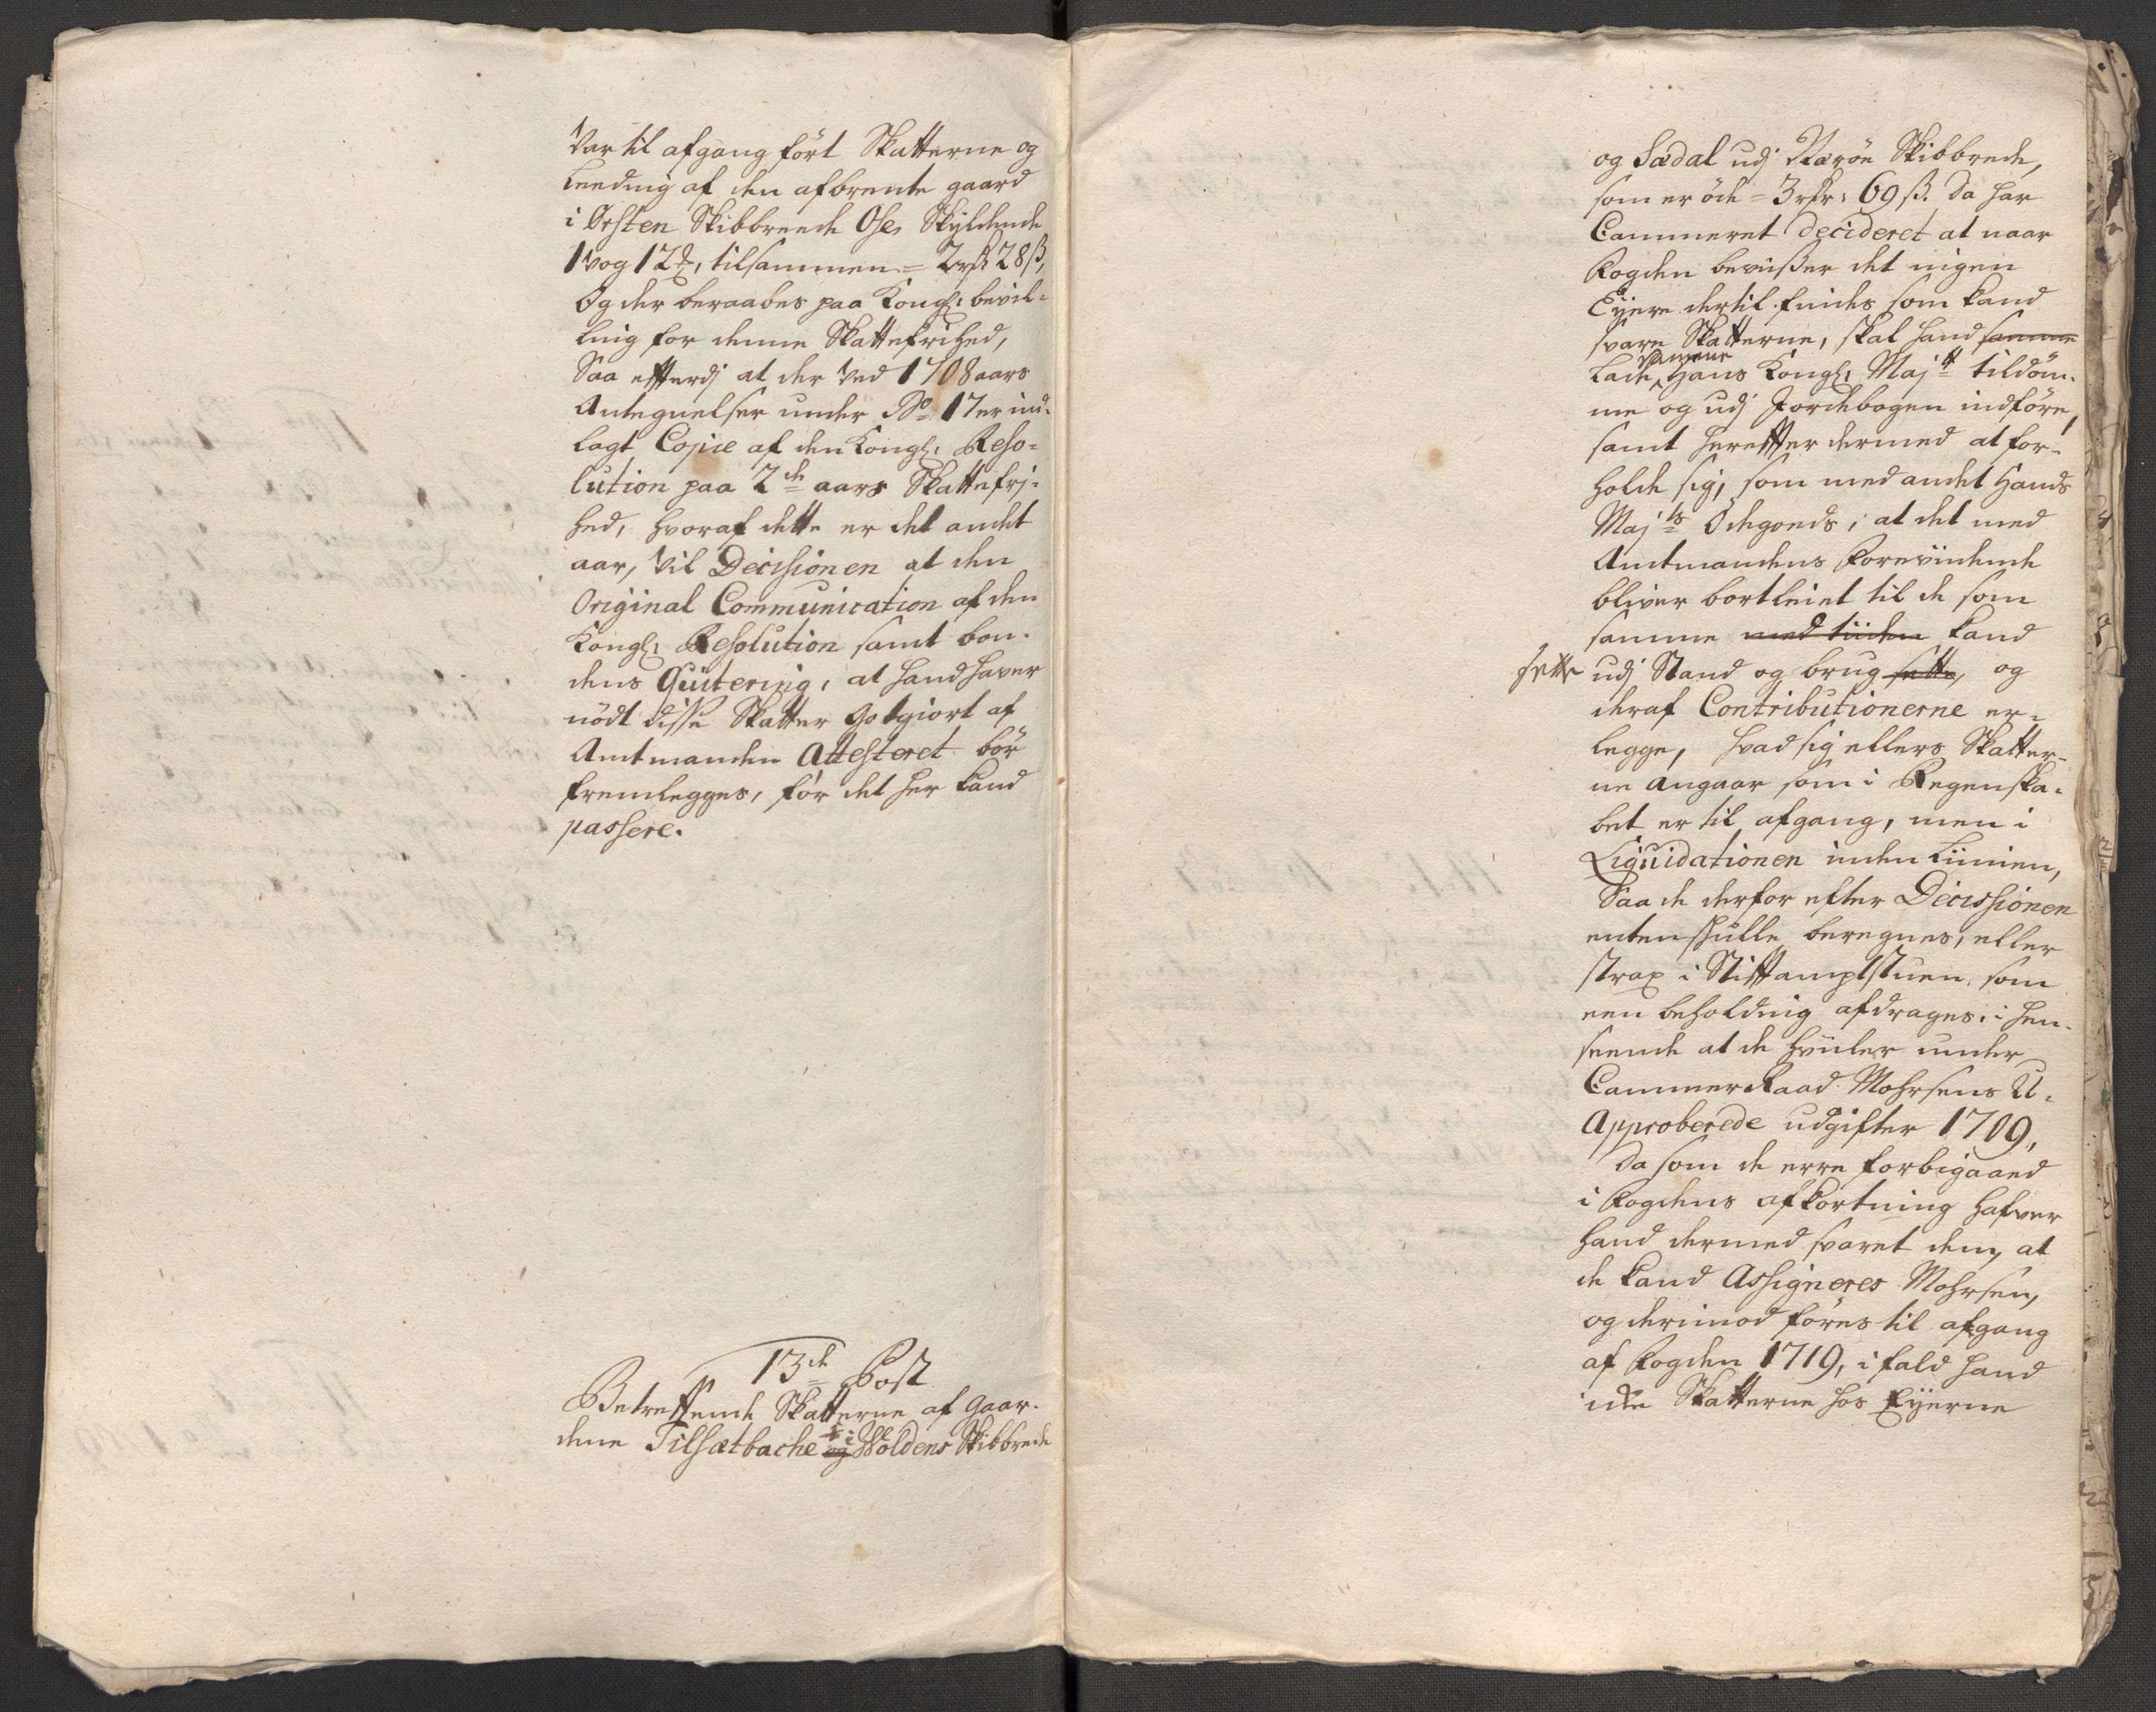 Var til afgang fört Skatterne og
Leeding af den afbrente gaard
i Örsten Skibbreede Ose, Skyldende
1 Vog 12 ℔, tilsammen = 2 rdr 28 ß,
Og der beraabes paa Kongl: bevil-
ling for denne Skattefrihed,
Saa efterdj at der Ved 1708 aars
Antegnelser under No 17 er ind-
lagt Copie af den Kongl: Reso-
lution paa 2de aars Skattefrj-
hed, hvoraf dette er det andet
aar, Vil Decisionen at den
Original Communication af den
Kongl: Resolution samt bon-
dens Qvitering, at hand haver
nödt disse Skatter Gotgiort af
Amtmanden Attesteret bör
fremlegges, för det her kand
passere.
13de Post
Betreffende Skatterne af gaar-
dene Tilsætbache og i Woldens Skibbrede
og Sædal udj Næröe Skibbrede,
som er öde = 3 rdr: 69 ß. da har
Cammeret decideret at naar
Fogden beviißer det ingen
Eyere dertil findes som kand
svare Skatterne, skal hand samme
lade samme Hans Kongl: Majtt tildöm-
me og udj Jordebogen indföre,
samt herefter dermed at for-
holde sig, som med andet Hands
Majts Ödegods, at det med
Amtmandens Forevidende
bliver bortleiet til de som
samme med tiiden kand
sette udj Stand og brug sette, og
deraf Contributionerne er-
legge, hvad sig ellers Skatter-
ne angaar som i Regenska-
bet er til afgang, men i
Liquidationen inden Liinien,
Saa de derfor efter Decissionen
enten skulle beregnes, eller
strax i Stiftamptstuen som
een beholdnig afdrages, i hen-
seende at de hviiler under
Cammer Raad Mohrsens U-
Approberede udgifter 1709,
da som de erre forbigaaed
i Fogdens afkortning hafver
hand dermed svaret dem, at
de kand Assigneres Mohrsen,
og derimod föres til afgang
af Fogden 1719, i fald hand
icke Skatterne hos Eyerne